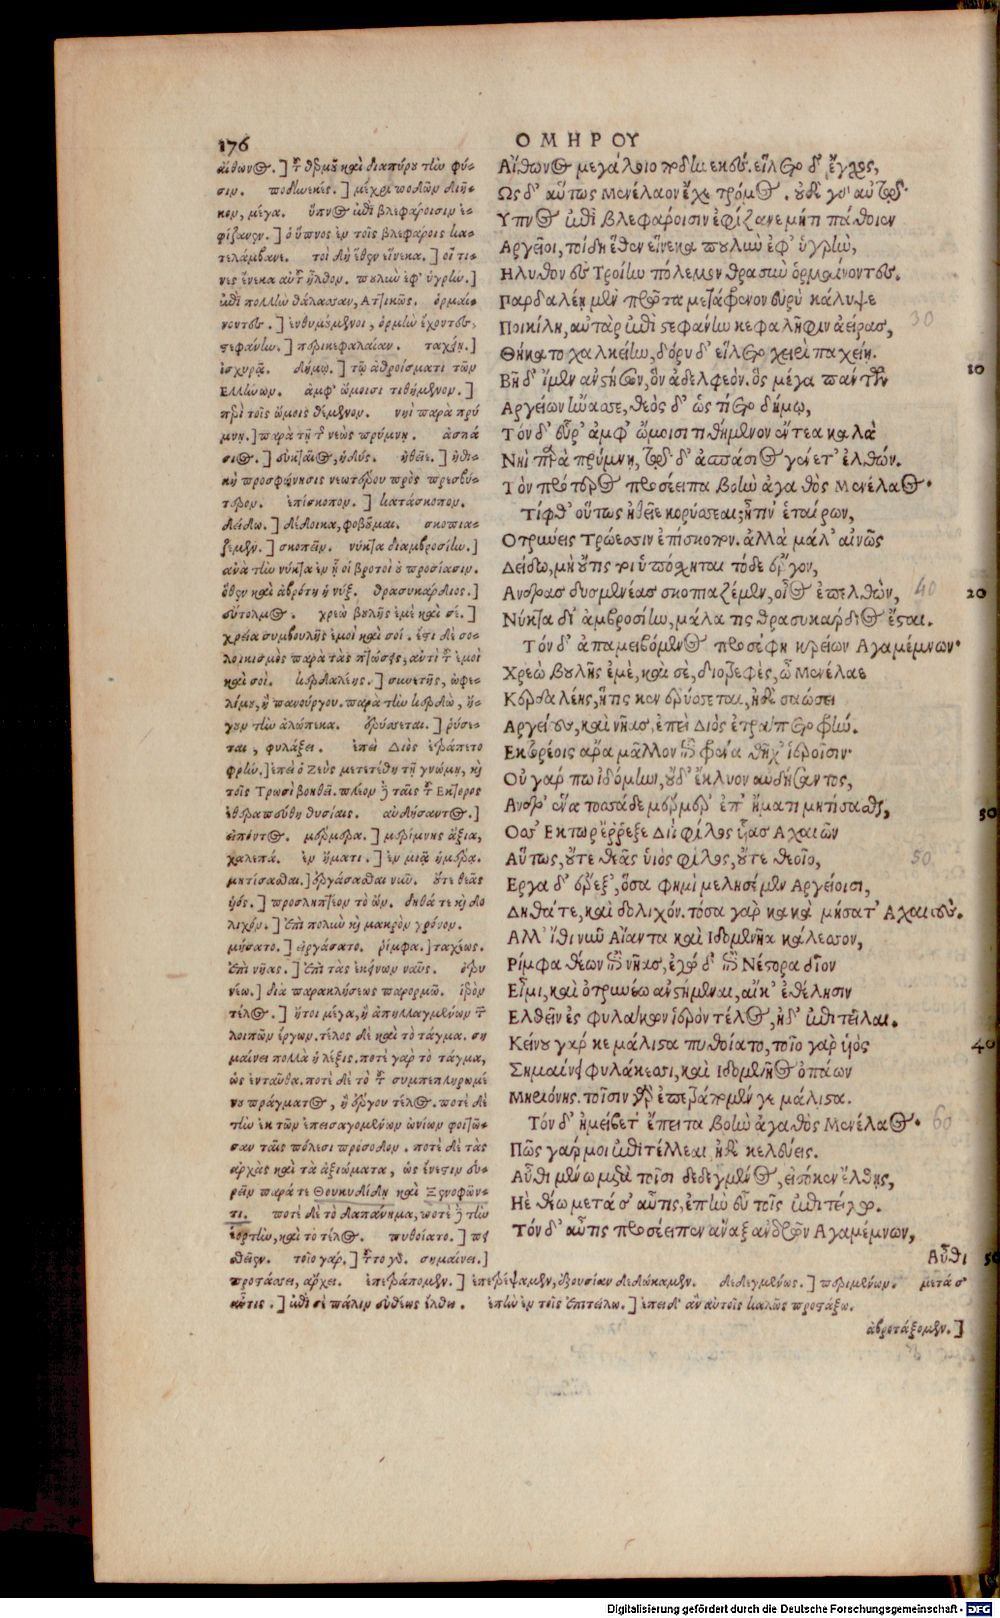 176 ΟΜΗΡΟΥ
αἴθωνος.] τοῦ θερμοῦ καὶ διαπύρου τὴν φύ-
σιν. ποδηνεκές.] μέχρι ποδῶν διῆ-
κον, μέγα. ὕπνος ἐπὶ βλεφάροισιν ἐ-
φίζανεν.] ὁ ὕπνος ἐν τοῖς βλεφάροις κα-
τελάμβανε. τοὶ δὴ ἕθεν εἵνεκα.] οἵ τι-
νες ἕνεκα αὐτοῦ ἦλθον. πουλὺν ἐφ' ὑγρὴν.]
ἐπὶ πολλὴν θάλασσαν, Ἀττικῶς. ὁρμαί-
νοντες.] ἐνθυμούμενοι, ὁρμὴν ἔχοντες.
στεφάνην.] περικεφαλαίαν. παχείῃ.]
ἰσχυρᾷ. δήμῳ.] τῷ ἀθροίσματι τῶν
Ελλήνων. ἀμφ' ὤμοισι τιθήμενον.]
περὶ τοῖς ὤμοις θέμενον. νηὶ παρὰ πρύ
μνῃ.] παρὰ τῇ τῆς νεὼς πρύμνῃ. ἀσπά
σιος.] εὐκταῖος, ἡδύς. ἠθεῖε.] ἠθι-
κὴ προσφώνησις νεωτέρου πρὸς πρεσβύ-
τερον. ἐπίσκοπον.] κατάσκοπον.
δείδω.] δέδοικα, φοβοῦμαι. σκοπια-
ζέμεν.] σκοπεῖν. νύκτα δι' ἀμβροσίην.]
ἀνὰ τὴν νύκτα ἐν ᾗ οἱ βροτοὶ οὐ προσίασιν.
ὅθεν καὶ ἀβρότη ἡ νύξ. θρασυκάρδιος.]
εὔτολμος. χρεὼ βουλῆς ἐμὲ καὶ σέ.]
χρεία συμβουλῆς ἐμοὶ καὶ σοί. ἔστι δὲ σο-
λοικισμὸς παρὰ τὰς πτώσεις, αὐτὶ τοῦ ἐμοὶ
καὶ σοί. κερδαλέης.] συνετῆς, ὠφε-
λίμου, ἢ πανούργου. παρὰ τὴν κερδὼ, ἤ-
γουν τὴν αλώπεκα. ἐρύσσεται.] ῥύσε-
ται, φυλάξει. ἐπεὶ Διὸς ἐτράπετο
φρήν.] ἐπεὶ ὁ Ζεὺς μετετέθη τῇ γνώμῃ, καὶ
τοῖς Τρωσὶ βοηθεῖ. πλέον γὰρ ταῖς τοῦ Εκτορος
ἐθεραπεύθη θυσίαις. αὐδήσαντος.]
εἰπόντος. μέρμερα.] μερίμνης ἄξια,
χαλεπά. ἐν ἤματι.] ἐν μιᾷ ἡμέρᾳ.
μητίσασθαι.] ἐργάσασθαι νῦν. οὔτε θεᾶς
υἱός.] προσληπτέον τὸ ὤν. δηθά τε καὶ δο
λιχόν.] ἐπὶ πολὺν καὶ μακρὸν χρόνον.
μήσατο.] εἰργάσατο. ῥίμφα.] ταχέως.
ἐπὶ νῆας.] ἐπὶ τὰς ἐκείνων ναῦς. ὀτρυ
νέω.] διὰ παρακλήσεως παρορμῶ. ἱερὸν
τέλος.] ἤτοι μέγα, ἢ ἀπηλλαγμένων τῶν
λοιπῶν ἔργων. τέλος δὲ καὶ τὸ τάγμα. ση
μαίνει πολλὰ ἡ λέξις. ποτὲ γὰρ τὸ τάγμα,
ὡς ἐνταῦθα. ποτὲ δὲ τὸ τοῦ συμπεπληρωμέ
νου πράγματος, ἢ ἔργου τέλος. ποτὲ δὲ
τὴν ἐκ τῶν ἐπεισαγομένων ὠνίων φοιτῶ-
σαν ταῖς πόλεσι πρόσοδον. ποτὲ δὲ τὰς
ἀρχὰς καὶ τὰ ἀξιώματα, ὡς ἔνεστιν εὑ-
ρεῖν παρά τε Θουκυδίδῃ καὶ Ξενοφῶν-
τι. ποτὲ δὲ τὸ δαπάνημα, ποτὲ γὰρ τὴν
ἑορτὴν, καὶ τὸ τέλος. πυθοίατο.] πει
σθεῖεν. τοῖο γάρ.] τούτου γὰρ. σημαίνει.]
προτάσσει, αρχει. ἐπετράπομεν.] ἐπετρέψαμεν, ἐξουσίαν δεδώκαμεν. δεδεγμένος.] περιμένων. μετά σ'
αὖτις.] ἐπὶ σὲ πάλιν εὐθέως ἔλθω. ἐπὴν εὖ τοῖς ἐπιτείλω.] ἐπειδ' ἂν αὐτοῖς καλῶς προστάξω.
ἀβροτάξομεν.]
Αἴθωνος μεγάλοιο ποδηνεκές. εἵλετο δ' ἔγχος,
Ως δ' αὔτως Μενέλαον ἔχε τρόμος. οὐδὲ γὰρ αὐτῷ
Υπνος ἐπὶ βλεφάροισιν ἐφίζανε μήτι πάθοιεν
Αργεῖοι, τοὶ δὴ ἕθεν εἵνεκα πουλὺν ἐφ' ὑγρὴν,
Ηλυθον ἐς Τροίην πόλεμον θρασὺν ὁρμαίνοντες.
Παρδαλέῃ μὲν πρῶτα μετάφρενον εὐρὺ κάλυψε
Ποικίλῃ, αὐτὰρ ἐπὶ στεφάνην κεφαλῆφιν ἀείρας,
Θήκατο χαλκείην, δόρυ δ' εἵλετο χειρὶ παχείῃ.
Βῆ δ' ἴμεν ἀνστήσων, ὃν ἀδελφεὸν. ὃς μέγα πάντων 10
Αργείων ἤνασσε, θεὸς δ' ὣς τίετο δήμῳ,
Τόν δ' εὗρ' ἀμφ' ὤμοισι τιθήμενον ἔντεα καλὰ
Νηὶ παρὰ πρύμνῃ, τῷ δ' ἀσπάσιος γένετ' ἐλθών.
Τὸν πρότερος προσέειπε βοὴν ἀγαθὸς Μενέλαος.
Τίφθ' οὕτως ἠθεῖε κορύσσεαι; ἤτιν' ἑταίρων,
Οτρυνέεις Τρώεσσιν ἐπίσκοπον. ἀλλὰ μάλ' αἰνῶς
Δείδω, μὴ οὔτις τοι ὑπόσχηται τόδε ἔργον,
Ανδρας δυσμενέας σκοπιαζέμεν, οἶος ἐπελθὼν, 20
Νύκτα δι' ἀμβροσίην, μάλα τις θρασυκάρδιος ἔσται.
Τόν δ' ἀπαμειβόμενος προσέφη κρείων Αγαμέμνων.
Χρεὼ βουλῆς ἐμὲ, καὶ σὲ, διοτρεφὲς, ὦ Μενέλαε
Κερδαλέης, ἥτις κεν ἐρύσσεται, ἠδὲ σαώσει
Αργείους, καὶ νῆας, ἐπεὶ Διὸς ἐτράπετο φρήν.
Εκτορέοις ἄρα μᾶλλον ἐπὶ φρένα θῆχ' ἱεροῖσιν.
Οὐ γάρ πω ἰδόμην, οὐδ' ἔκλυον αὐδήσαντος,
Ανδρ' ἕνα τοσσάδε μέρμερ' ἐπ' ἤματι μητίσασθαι, 30
Οσσ' Εκτωρ ἔρρεξε Διῒ φίλος υἷας Αχαιῶν
Αὔτως, οὔτε θεᾶς υἱὸς φίλος, οὔτε θεοῖο,
Εργα δ' ἔρεξ', ὅσα φημὶ μελησέμεν Αργείοισι,
Δηθά τε, καὶ δολιχόν. τόσα γὰρ κακὰ μήσατ' Αχαιούς.
Αλλ' ἴθι νῦν Αἴαντα καὶ Ιδομενῆα κάλεσσον,
Ρίμφα θέων ἐπὶ νῆας, ἐγὼ δ' ἐπὶ Νέστορα δῖον
Εἶμι, καὶ ὀτρυνέω ἀνστήμεναι, αἴκ' ἐθέλῃσιν
Ελθεῖν ἐς φυλάκων ἱερὸν τέλος, ἠδ' ἐπιτεῖλαι.
Κείνου γάρ κε μάλιστα πυθοίατο, τοῖο γὰρ υἱὸς 40
Σημαίνει φυλάκεσσι, καὶ Ιδομενῆος ὀπάων
Μηριόνης. τοῖσιν γὰρ ἐπετράπομέν γε μάλιστα.
Τόν δ' ἠμείβετ' ἔπειτα βοὴν ἀγαθὸς Μενέλαος.
Πῶς γάρ μοι ἐπιτέλλεαι ἠδὲ κελεύεις.
Αὖθι μένω μετὰ τοῖσι δεδεγμένος, εἰσόκεν ἔλθῃς,
Ηὲ θέω μετά σ' αὖτις, ἐπὴν εὖ τοῖς ἐπιτείλω.
Τόν δ' αὖτις προσέειπεν ἄναξ ἀνδρῶν Αγαμέμνων,
Αὖθι 50
30
40
50
60
Digitalisierung gefördert durch die Deutsche Forschungsgemeinschaft - DFG